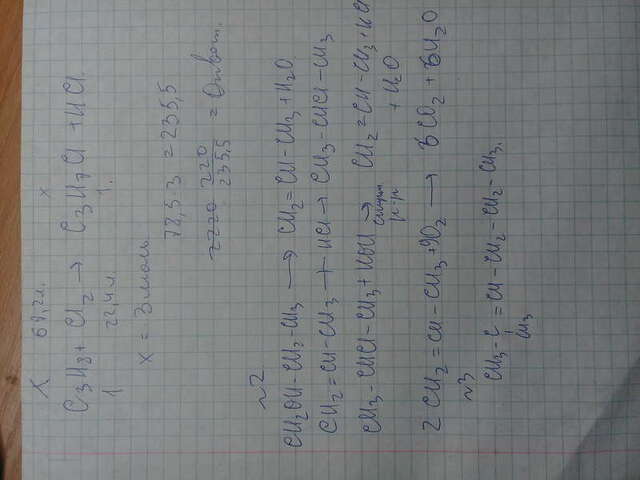 X 67,2л. x
C3H8 + Cl2 → C3H7Cl + HCl
1 22,4 л. 1.
x = 3 моль
78,5·3 = 235,5
220/235,5 = Ответ.
~2
CH2OH-CH2-CH3 → CH2=CH-CH3 + H2O
CH2=CH-CH3 + HCl → CH3-CHCl-CH3
CH3-CHCl-CH3 + KOH → CH2=CH-CH3 + KCl
спирт. р-р + H2O
2 CH2=CH-CH3 + 9O2 → 6CO2 + 6H2O
~3
CH3-C=CH-CH2-CH2-CH3.
CH3